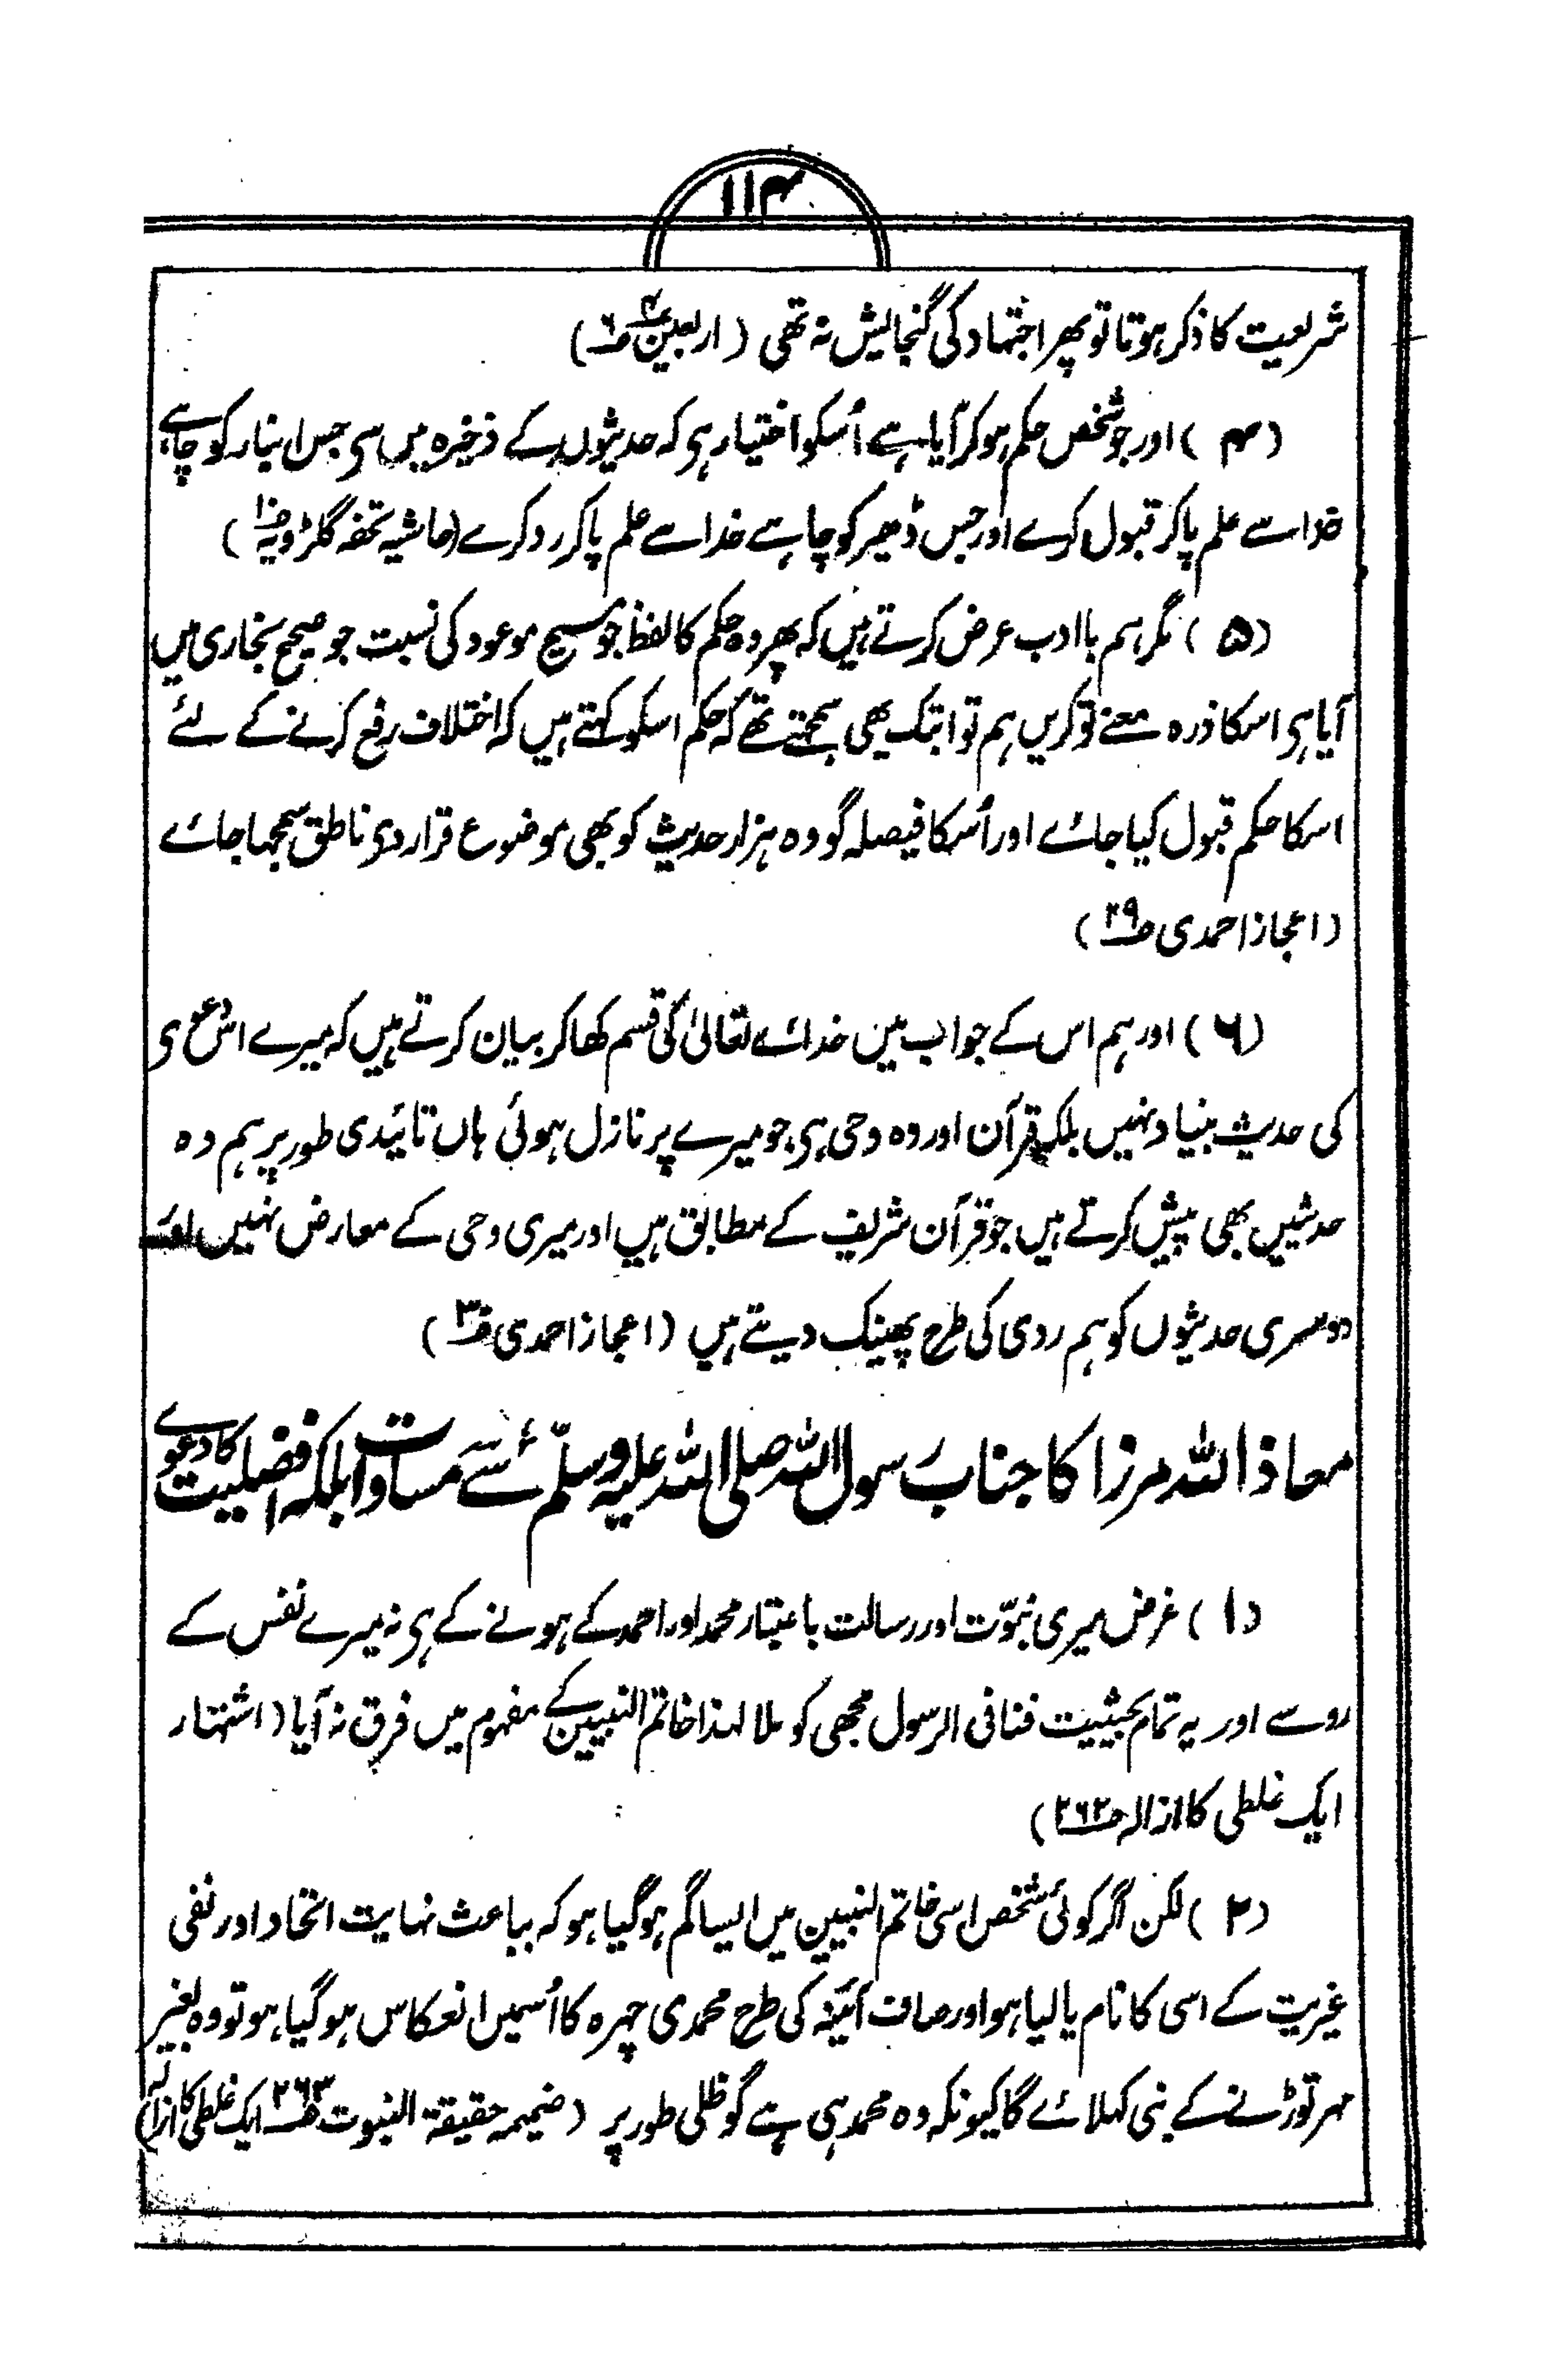 ۱۱۴
شریعت کا ذکر ہوتا تو پھر اجتہاد کی گنجایش نہ تھی (اربعین ۴ ص۶)
(۴) اور جو شخص حکم ہو کر آیا ہے اُسکو اختیار ہی کہ حدیثوں کے ذخیرہ میں سی جس انبار کو چاہے
خدا سے علم پا کر قبول کرے اور جس ڈھیر کو چاہے خدا سے علم پا کر رد کرے (حاشیہ تحفہ گلڑویہ ص۱۰)
(۵) مگر ہم باادب عرض کرتے ہیں کہ پھر وہ حکم کا لفظ جو مسیح موعود کی نسبت جو صحیح بخاری میں
آیا ہی اسکا ذرہ معنے تو کریں ہم تو ابتک یہی سمجھتے تھے کہ حکم اسکو کہتے ہیں کہ اختلاف رفع کرنے کے لئے
اسکا حکم قبول کیا جائے اور اُسکا فیصلہ گو وہ ہزار حدیث کو بھی موضوع قرار دی ناطق سمجھا جائے
(اعجاز احمدی ص۲۹)
(۶) اور ہم اس کے جواب میں خدائے تعالیٰ کی قسم کھا کر بیان کرتے ہیں کہ میرے اس دعوی
کی حدیث بنیاد نہیں بلکہ قرآن اور وہ وحی ہی جو میرے پر نازل ہوئی ہاں تائیدی طور پر ہم وہ
حدثیں بھی پیش کرتے ہیں جو قرآن شریف کے مطابق ہیں اور میری وحی کے معارض نہیں اور
دوسری حدیثوں کو ہم ردی کی طرح پھینک دیتے ہیں (اعجاز احمدی ص۳۰)
معاذ اللہ مرزا کا جناب رسول اللہ صلی اللہ علیہ وسلّم سے مساوات بلکہ افضلیت کا دعوے
(۱) غرض میری نبوّت اور رسالت باعتبار محمد اور احمد کے ہونے کے ہی نہ میرے نفس کے
روسے اور یہ تمام بحیثیت فنافی الرسول مجھی کو ملا لہذا خاتم النبیین کے مفہوم میں فرق نہ آیا (اشتہار
ایک غلطی کا ازالہ ص۲۶۲)
(۲) لکن اگر کوئی شخص اسی خاتم النبیین میں ایسا گم ہو گیا ہو کہ بباعث نہایت اتحاد اور نفی
غیریت کے اسی کا نام پا لیا ہو اور صاف آئینہ کی طرح محمدی چہرہ کا اُسمیں انعکاس ہو گیا ہو تو وہ بغیر
مہر توڑنے کے نبی کہلائے گا کیونکہ وہ محمد ہی ہے گو ظلی طور پر (ضمیمہ حقیقۃ النبوت ص۲۶۳ ایک غلطی کا ازالہ)